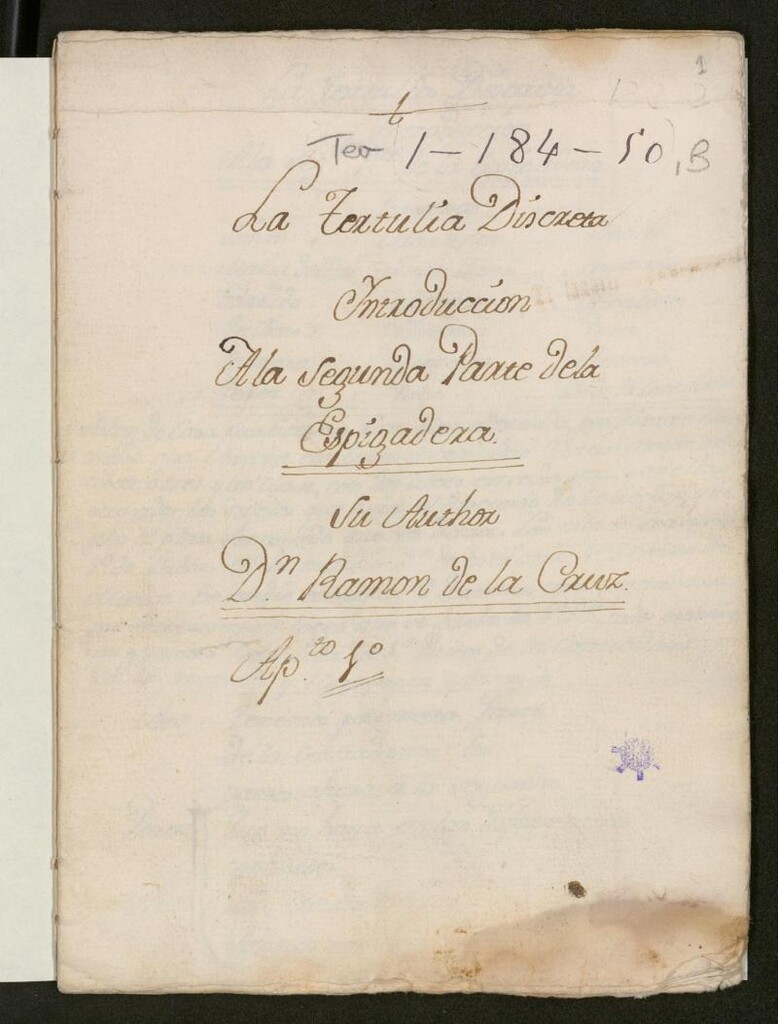 1
Tea 1-184-50, B
La Tertulia Discreta
Introduccion
A la Segunda Parte dela
Espigadera.
Su Author
Dⁿ Ramon de la Cruz.
Ap.ᵗᵒ 1º